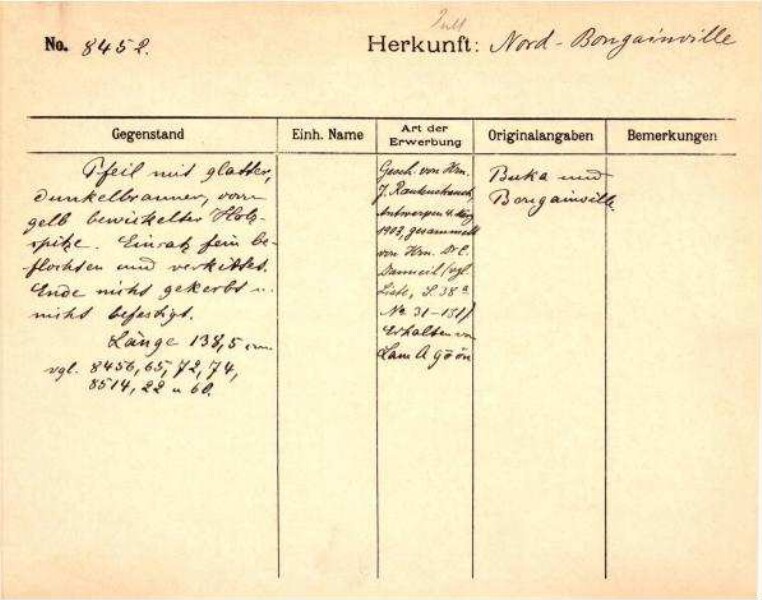 No. 8452.
Herkunft: Nord-Bougainville
Gegenstand
Einh. Name
Art der Erwerbung
Originalangaben
Bemerkungen
Pfeil mit glatter,
dunkelbrauner, vorn
gelb bewickelter Holz-
spitze. Einsatz fein be-
flochten und verkittet.
Ende nicht gekerbt u.
nicht befestigt.
Länge 138,5 cm
vgl. 8456, 65, 72, 74,
8514, 22 u 60.
Gesch. von Hrn.
J. Rautenstrauch,
Antwerpen 4. März
1903, gesammelt
von Hrn. Dr C.
Danneil (vgl.
Liste, S. 38a
No 31-131)
Erhalten von
Lam
Buka und
Bougainville.